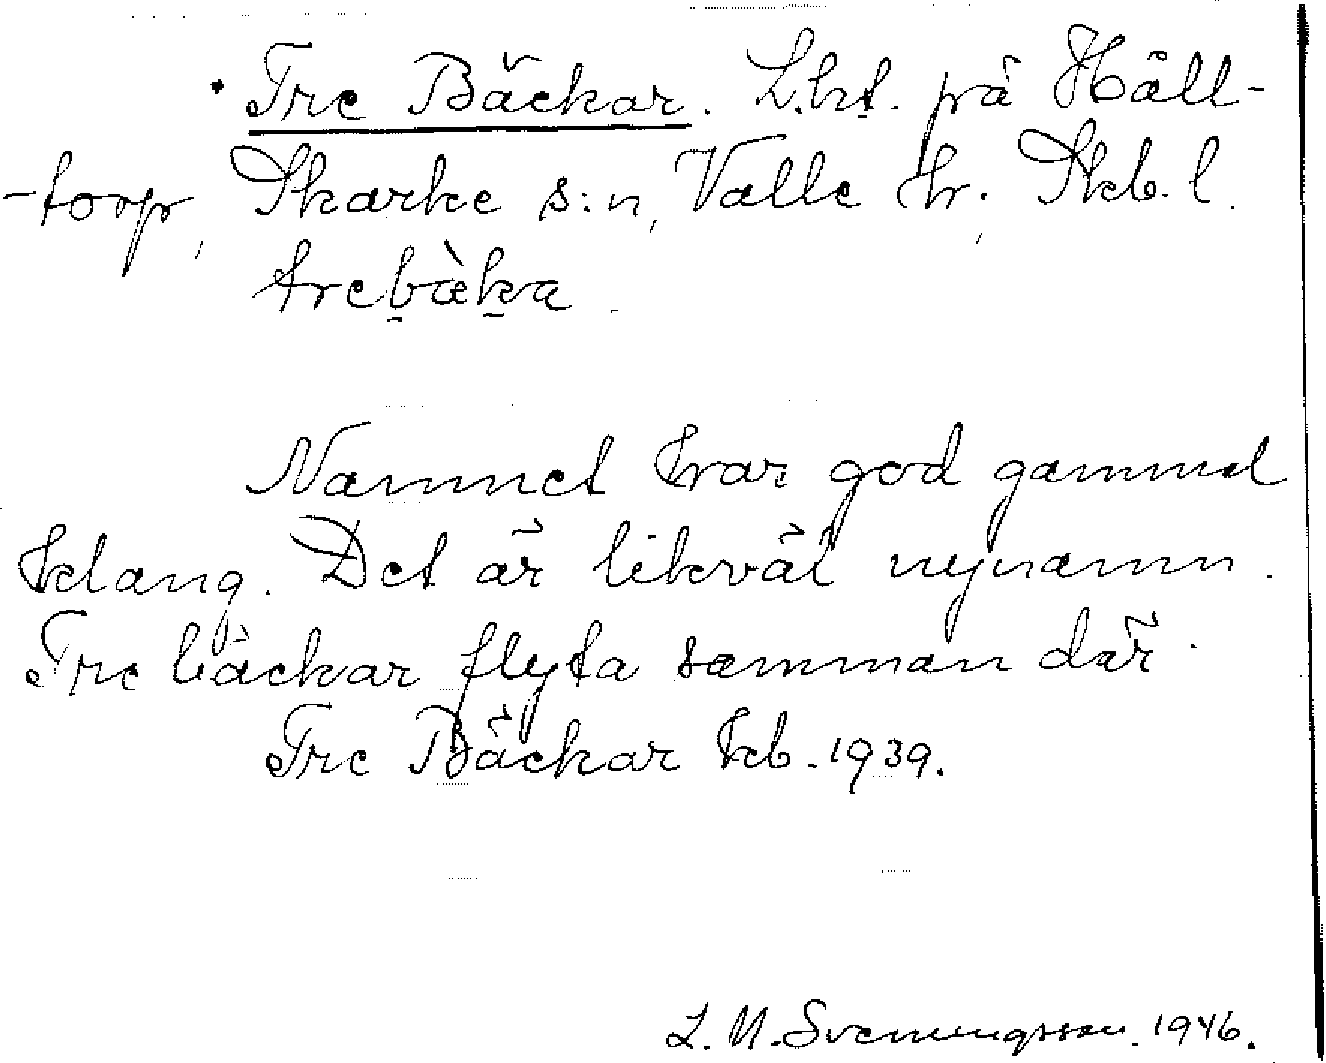 Tre Bäckar. L.ht. på Häll-
-torp, Skarke s:n, Valle hr, Skb. l.
trebæ̀ka.
Namnet har god gammal
klang. Det är likväl nynamn.
Tre bäckar flyta samman där.
Tre Bäckar kb. 1939.
L. M. Svenungsson. 1946.